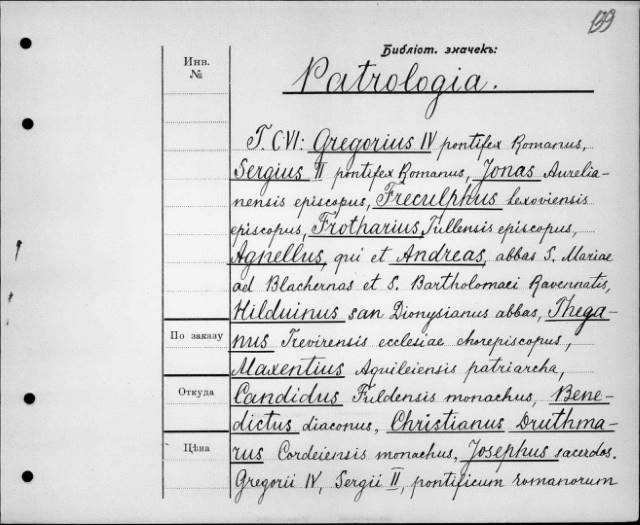 199
Библіот. значекъ:
Инв.
№
Patrologia.
T. CVI: Gregorius IV pontifex Romanus,
Sergius II pontifex Romanus, Jonas Aurelia-
nensis episcopus, Freculphus lexoviensis
episcopus, Frotharius Tullensis episcopus,
Agnellus, qui et Andreas, abbas S. Mariae
ad Blachernas et S. Bartholomaei Ravennatis,
Hilduinus san Dionysianus abbas, Thega-
По заказу
nus Trevirensis ecclesiae chorepiscopus,
Maxentius Aquileiensis patriarcha,
Откуда
Candidus Fuldensis monachus, Bene-
dictus diaconus, Christianus Druthma-
Цѣна
rus Cordeiensis monachus, Josephus sacerdos.
Gregorii IV, Sergii II, pontificum romanorum